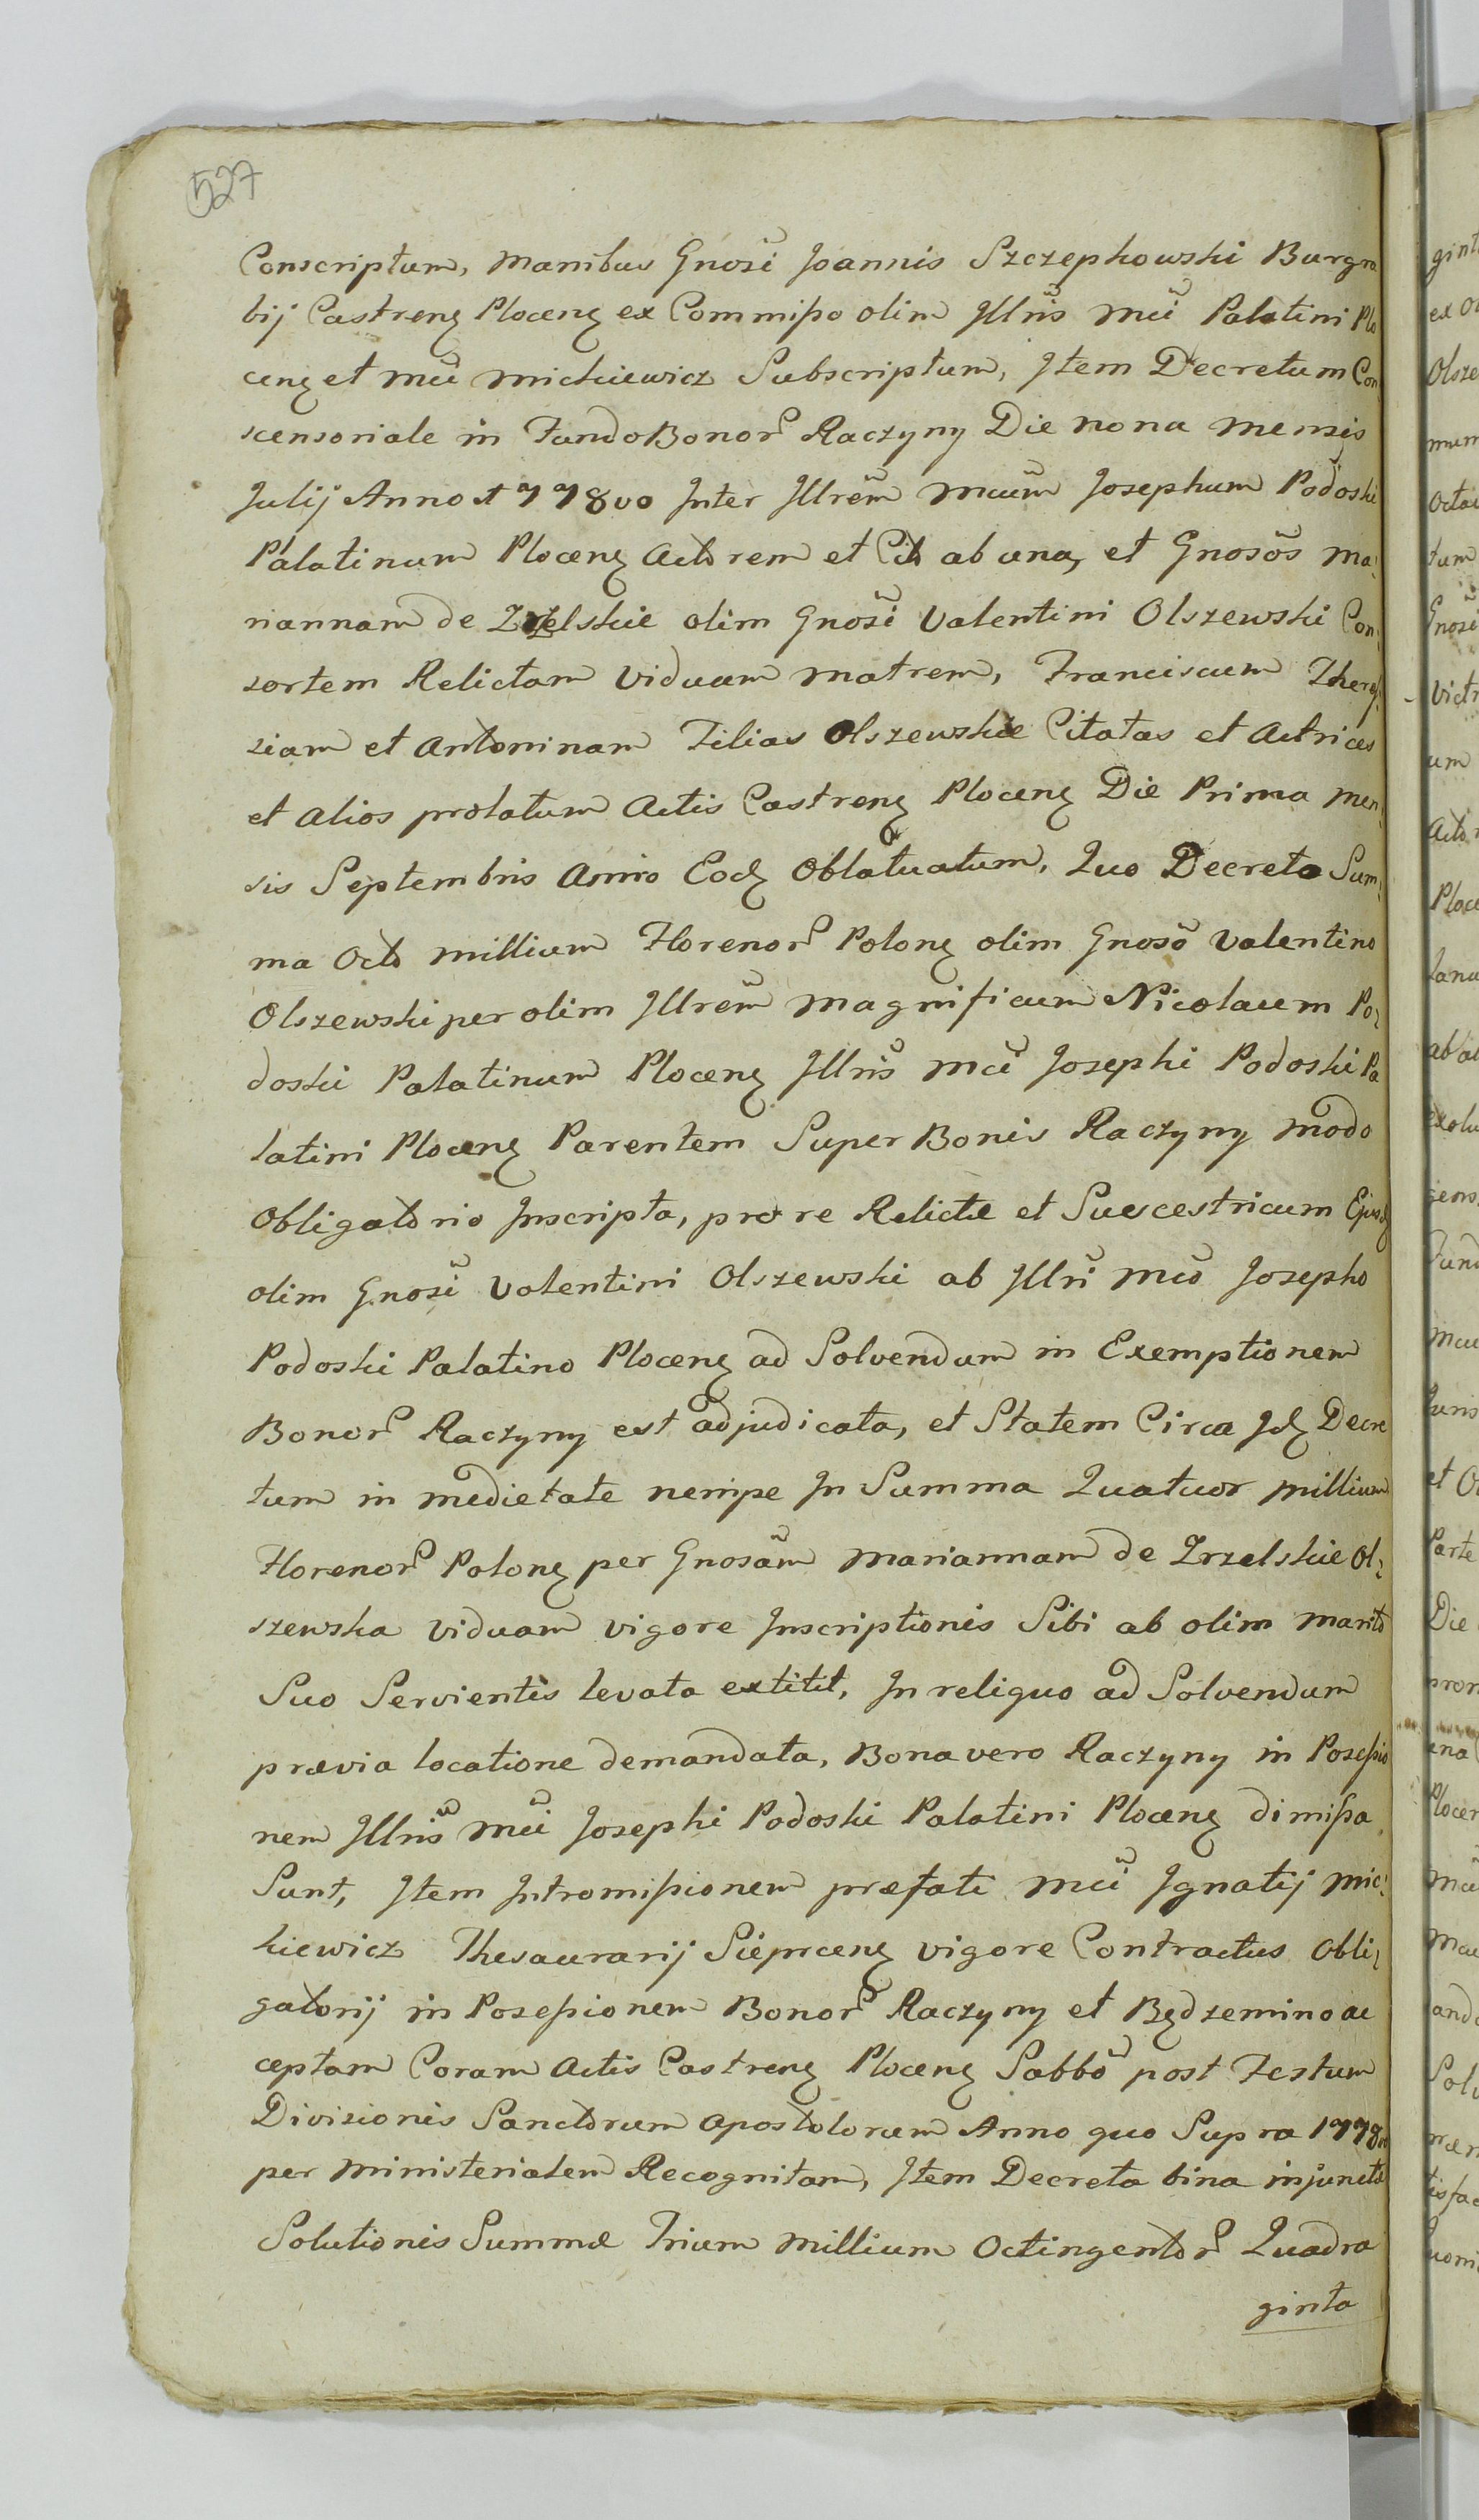 527
Conscriptum, Manibus Gnosi Joannis Szczepkowski Burgra
bij Castren Plocen ex Commisso olim Illris Mci Palatini Plo
cen et Mci Mickiewicz Subscriptum, Item Decretum Con
scensoriale in Fundo Bonor Raczyny Die Nona Mensis
Julij Anno 1778vo Inter Illrem Mcum Josephum Podoski
Palatinum Plocen Actorem et Cit ab una, et Gnosos Ma:
riannam de Zrzelskie olim Gnosi Valentini Olszewski Con:
sortem Relictam Viduam Matrem, Franciscum There:
siam et Antoninam Filias Olszewskie Citatas et Actrices
et Alios prolatum Actis Castren Plocen Die Prima Men:
sis Septembris Anno Eod Oblatuatum, Quo Decreto Sum:
ma Octo Millium Florenor Polon olim Gnoso Valentino
Olszewski per olim Illrem Magnificum Nicolaum Po:
doski Palatinum Plocen Illris Mci Josephi Podoski Pa
latini Plocen Parentem Super Bonis Raczyny Modo
Obligatorio Inscripta, pro re Relictæ et Suscestricum Ejusd
olim Gnosi Valentini Olszewski ab Illri Mco Josepho
Podoski Palatino Plocen ad Solvendum in Exemptionem
Bonor Raczyny est adjudicata, et Statem Circa Id Decre
tum in Medietate nempe In Summa Quatuor Millium
Florenor Polon per Gnosam Mariannam de Zrzelskie Ol:
szewska Viduam vigore Inscriptionis Sibi ab olim Marito
Suo Servientis levata extitit, In reliquo ad Solvendum
prævia locatione demandata, Bona vero Raczyny in Possessio
nem Illris Mci Josephi Podoski Palatini Plocen dimissa
Sunt, Item Intromissionem præfati Mci Ignatij Mic:
kiewicz Thesaurarij Sieprcen vigore Contractus Obli:
gatorij in Possessionem Bonor Raczyny et Będzemino ac
ceptam Coram Actis Castren Plocen Sabbo post Festum
Divisionis Sanctorum Apostolorum Anno quo Supra 1778vo
per Ministerialem Recognitam, Item Decreta bina injunctæ
Solutionis Summæ Trium Millium Octingentor Quadra
ginta